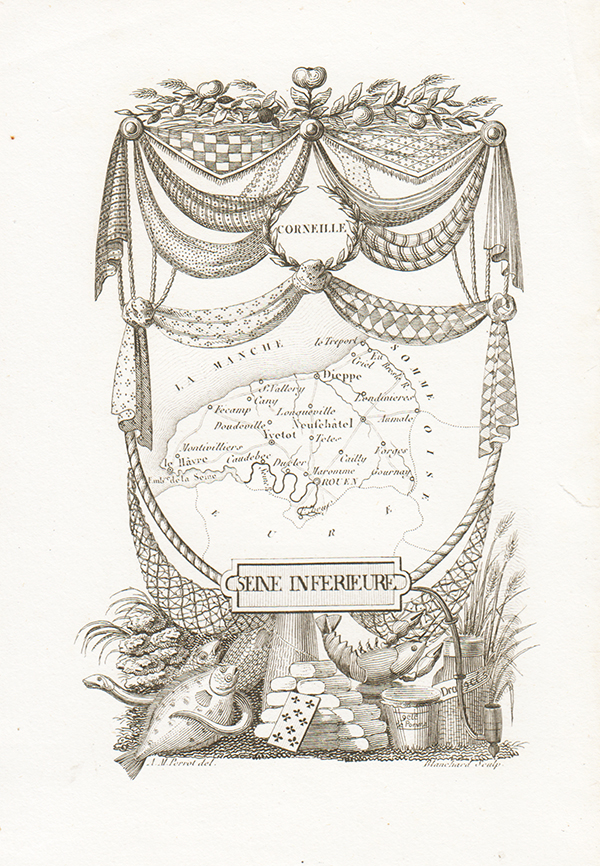 CORNEILLE
LA MANCHE
le Treport
Eu
Criel
SOMME
Dieppe
St. Vallery
Cany
Londinieres
Fécamp
Longueville
Aumale
Doudeville
Neufchâtel
Yvetot
Totes
OISE
Montivilliers
Caudebec
Cailly
Forges
le Hâvre
Ducler
Maromme
Gournay
Emb. de la Seine
ROUEN
Elbeuf
EURE
SEINE INFERIEURE
Gelé
de Pomme
A. M. Perrot del.
Blanchard Sculp.